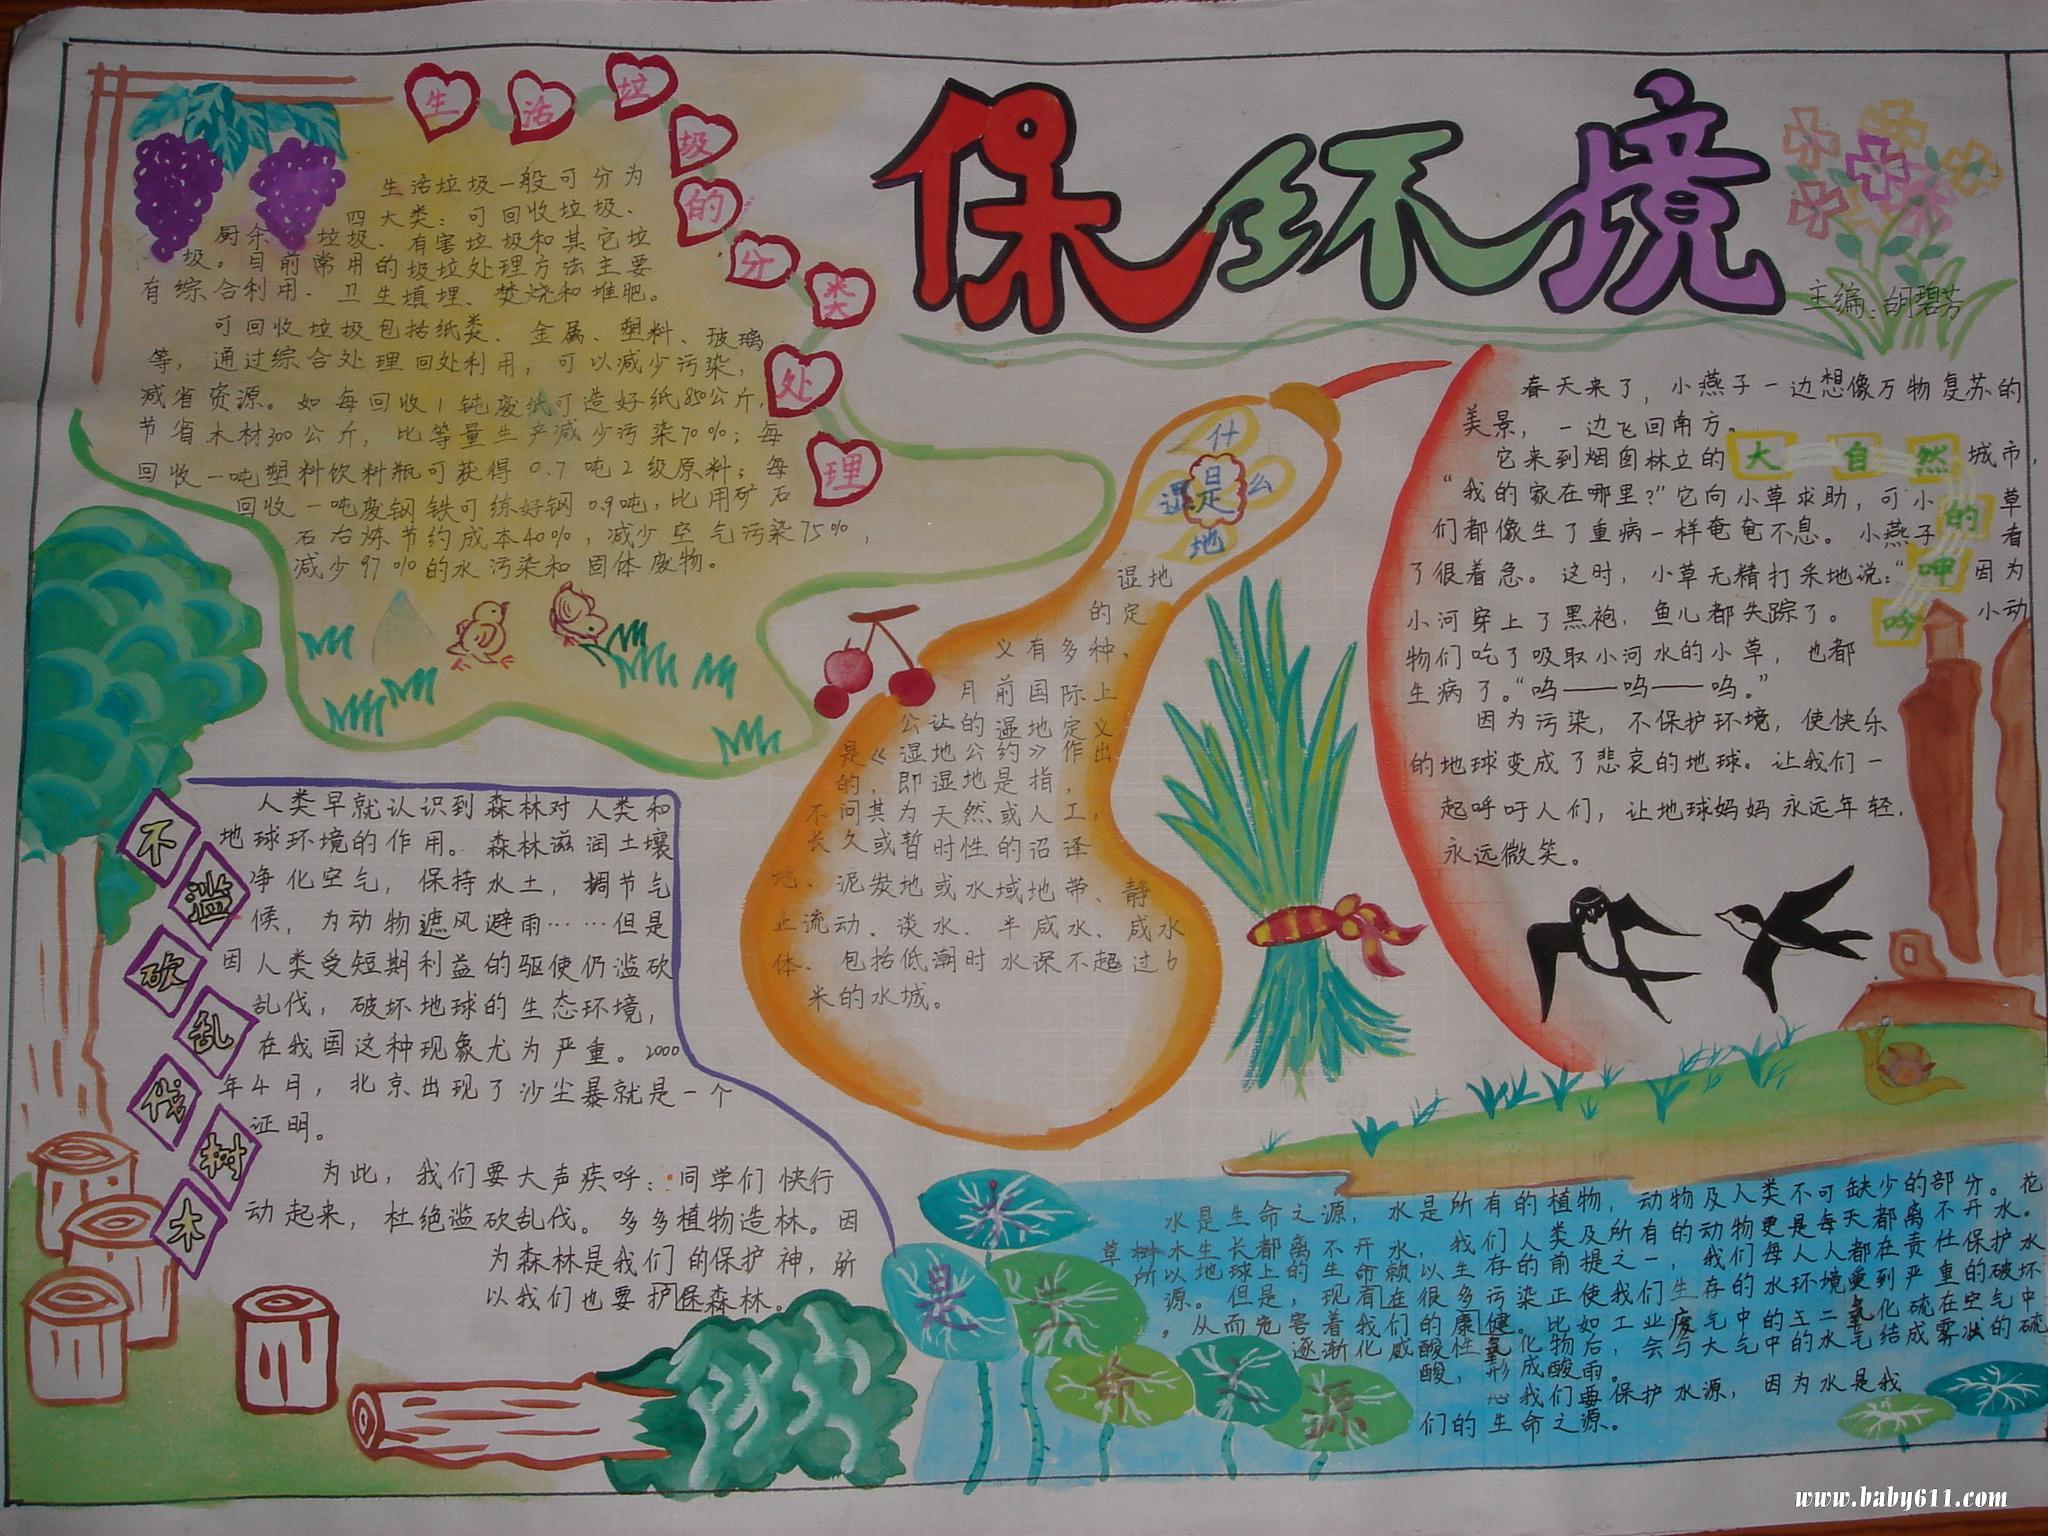 保环境
主编：胡碧芳
生活垃圾的分类处理
生活垃圾一般可分为
四大类：可回收垃圾、
厨余 垃圾、有害垃圾和其它垃
圾。目前常用的圾垃处理方法主要
有综合利用、卫生填埋、焚烧和堆肥。
可回收垃圾包括纸类、金属、塑料、玻璃
等，通过综合处理回处利用，可以减少污染，
减省资源。如每回收1钝废纸可造好纸850公斤，
节省木材300公斤，比等量生产减少污染70%；每
回收一吨塑料饮料瓶可获得0.7吨2级原料；每
回收一吨废钢铁可练好钢0.9吨，比用矿石
石右炼节约成本40%，减少空气污染75%，
减少97%的水污染和固体废物。
什么是湿地
湿地
的定
义有多种，
月前国际上
公让的湿地定义
是《湿地公约》作出
的，即湿地是指，
不问其为天然或人工，
长久或暂时性的沼泽
地、泥炭地或水域地带、静
止流动、淡水、半咸水、咸水
体、包括低潮时水深不超过6
米的水城。
大自然的呻吟
春天来了，小燕子一边想像万物复苏的
美景，一边飞回南方。
它来到烟囱林立的城市，
“我的家在哪里？”它向小草求助，可小草
们都像生了重病一样奄奄不息。小燕子看
了很着急。这时，小草无精打采地说：“因为
小河穿上了黑袍，鱼儿都失踪了。小动
物们吃了吸取小河水的小草，也都
生病了。“呜——呜——呜。”
因为污染，不保护环境，使快乐
的地球变成了悲哀的地球。让我们一
起呼吁人们，让地球妈妈永远年轻，
永远微笑。
不滥砍乱伐树木
人类早就认识到森林对人类和
地球环境的作用。森林滋润土壤
净化空气，保持水土，调节气
候，为动物遮风避雨……但是
因人类受短期利益的驱使仍滥砍
乱伐，破坏地球的生态环境，
在我国这种现象尤为严重。2000
年4月，北京出现了沙尘暴就是一个
证明。
为此，我们要大声疾呼：同学们快行
动起来，杜绝滥砍乱伐。多多植物造林。因
为森林是我们的保护神，所
以我们也要护保森林。
水是生命之源
水是生命之源，水是所有的植物，动物及人类不可缺少的部分。花
草树木生长都离不开水，我们人类及所有的动物更是每天都离不开水。
所以地球上的生命赖以生存的前提之一，我们每人人都在责任保护水
源。但是，现有在很多污染正使我们生存的水环境受到严重的破坏
，从而危害着我们的康健。比如工业废气中的二氧化硫在空气中
逐渐化成酸性氧化物后，会与大气中的水气结成雾状的硫
酸，形成酸雨。
我们要保护水源，因为水是我
们的生命之源。
www.baby611.com